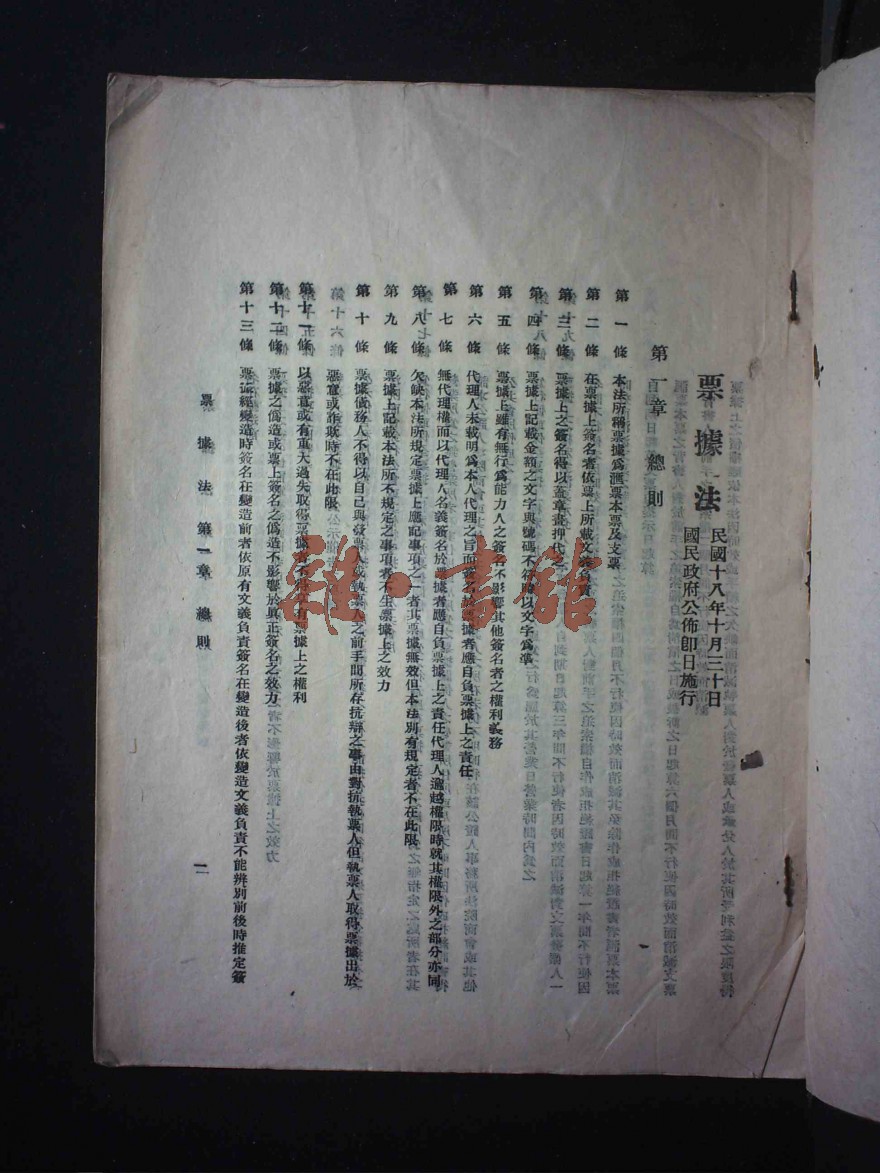 票據法
民國十八年十月三十日
國民政府公佈即日施行
第一章 總則
第一條 本法所稱票據爲滙票本票及支票
第二條 在票據上簽名者依票上所載文義負責
第三條 票據上之簽名得以蓋章畫押代之
第四條 票據上記載金額之文字與號碼不符時以文字爲準
第五條 票據上雖有無行爲能力人之簽名不影響其他簽名者之權利義務
第六條 代理人未載明爲本人代理之旨而簽名於票據者應自負票據上之責任
第七條 無代理權而以代理人名義簽名於票據者應自負票據上之責任代理人逾越權限時就其權限外之部分亦同
第八條 欠缺本法所規定票據上應記事項之一者其票據無效但本法別有規定者不在此限
第九條 票據上記載本法所不規定之事項者不生票據上之效力
第十條 票據債務人不得以自己與發票人或執票人之前手間所存抗辯之事由對抗執票人但執票人取得票據出於
惡意或詐欺時不在此限
第十一條 以惡意或有重大過失取得票據者不得享有票據上之權利
第十二條 票據之僞造或票上簽名之僞造不影響於眞正簽名之效力
第十三條 票據經變造時簽名在變造前者依原有文義負責簽名在變造後者依變造文義負責不能辨別前後時推定簽
票據法 第一章 總則
一
雜·書館